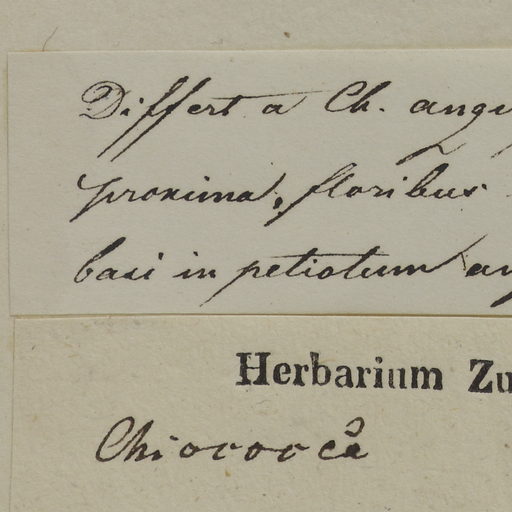 Differt a Ch. angu
proxima, floribus
basi in petiolum an
Herbarium Zu
Chiococca